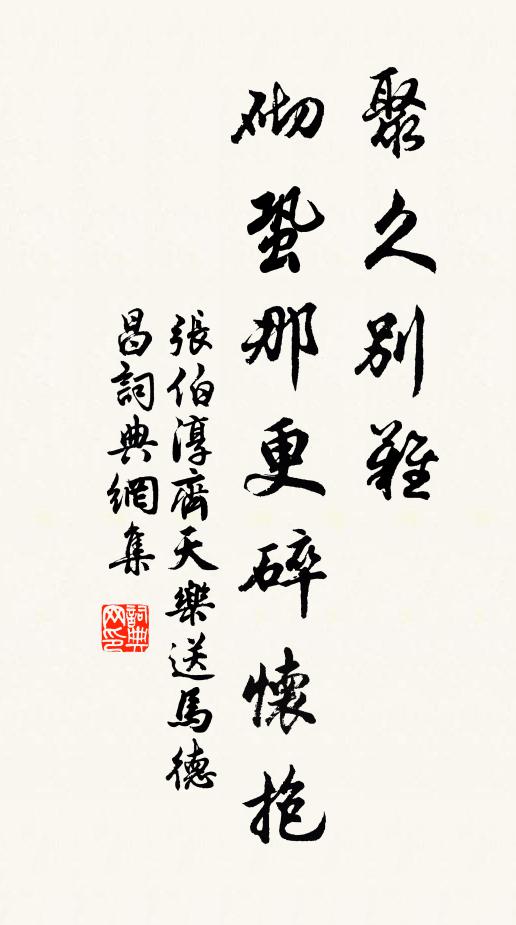 聚久別難
砌蛩那更碎懷抱
張伯淳齊天樂送馬德
昌詞典網集
詞典
网印